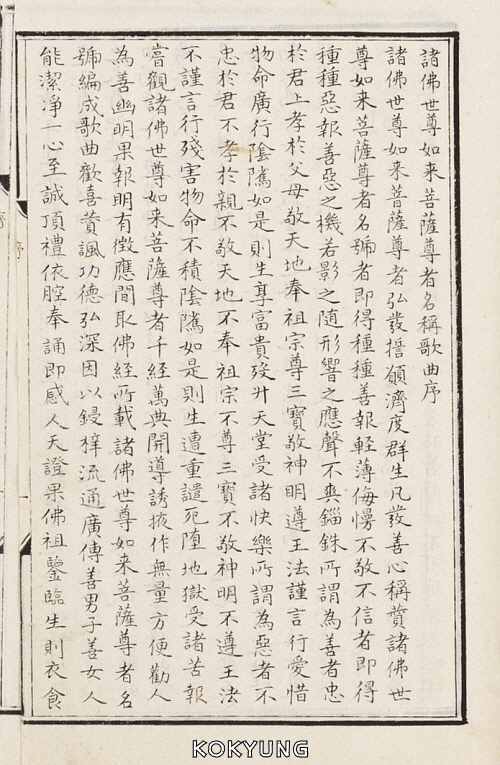 諸佛世尊如来菩薩尊者名稱歌曲序
諸佛世尊如来菩薩尊者弘發誓願濟度群生凡發善心稱讃諸佛世
尊如来菩薩尊者名號者即得種種善報輕薄侮慢不敬不信者即得
種種惡報善惡之機若影之随形響之應聲不爽錙銖所謂為善者忠
於君上孝於父母敬天地奉祖宗尊三寳敬神明遵王法謹言行愛惜
物命廣行陰隲如是則生享富貴殁升天堂受諸快樂所謂為惡者不
忠於君不孝於親不敬天地不奉祖宗不尊三寳不敬神明不遵王法
不謹言行殘害物命不積陰隲如是則生遭重譴死墮地獄受諸苦報
甞觀諸佛世尊如来菩薩尊者千經萬典開導誘掖作無量方便勸人
為善幽明果報明有徴應間取佛經所載諸佛世尊如来菩薩尊者名
號編成歌曲歡喜賛諷功德弘深因以鋟梓流通廣傳善男子善女人
能潔淨一心至誠頂禮依腔奉誦即感人天證果佛祖鑒臨生則衣食
序
KOKYUNG